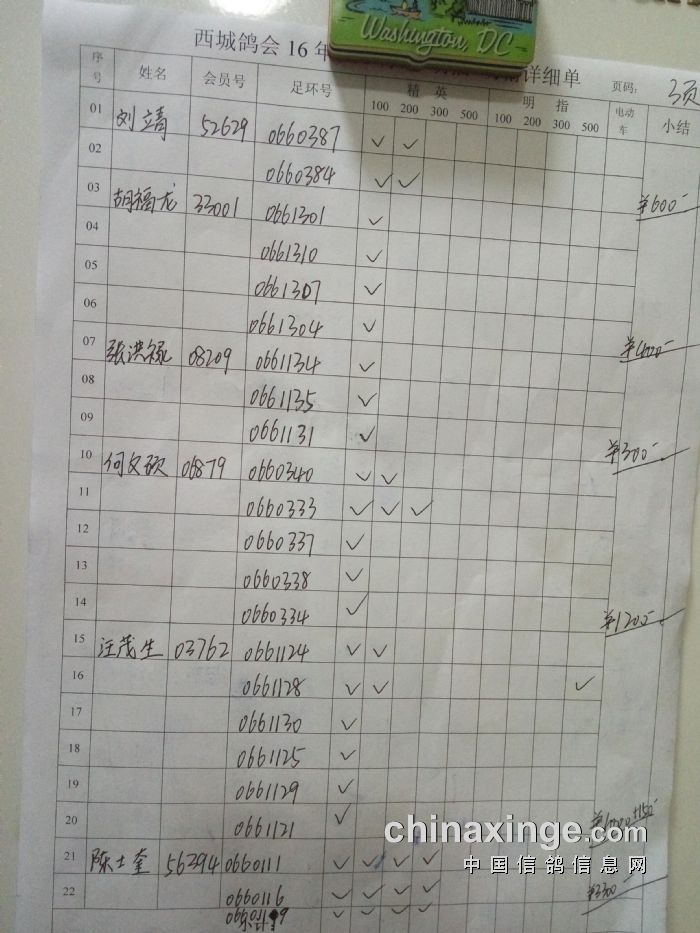 Washington, DC
西城鸽会16年 详细单
页码: 3页
序号 姓名 会员号 足环号 精英 明指 电动车 小结
100 200 300 500 100 200 300 500
01 刘靖 52629 0660387 ✓ ✓
02 0660384 ✓ ✓ ¥600-
03 胡福龙 33001 0661301 ✓
04 0661310 ✓
05 0661307 ✓
06 0661304 ✓ ¥400-
07 张洪禄 08209 0661134 ✓
08 0661135 ✓
09 0661131 ✓ ¥300-
10 何文硕 06879 0660340 ✓ ✓
11 0660333 ✓ ✓ ✓
12 0660337 ✓
13 0660338 ✓
14 0660334 ✓ ¥1200-
15 汪茂生 03762 0661124 ✓ ✓
16 0661128 ✓ ✓ ✓
17 0661130 ✓
18 0661125 ✓
19 0661129 ✓
20 0661121 ✓
21 陈士奎 56394 0660111 ✓ ✓ ✓ ✓
22 0660116 ✓ ✓ ✓ ✓ ¥3300-
✓ ✓ ✓ ✓
chinaxinge.com
中国信鸽信息网